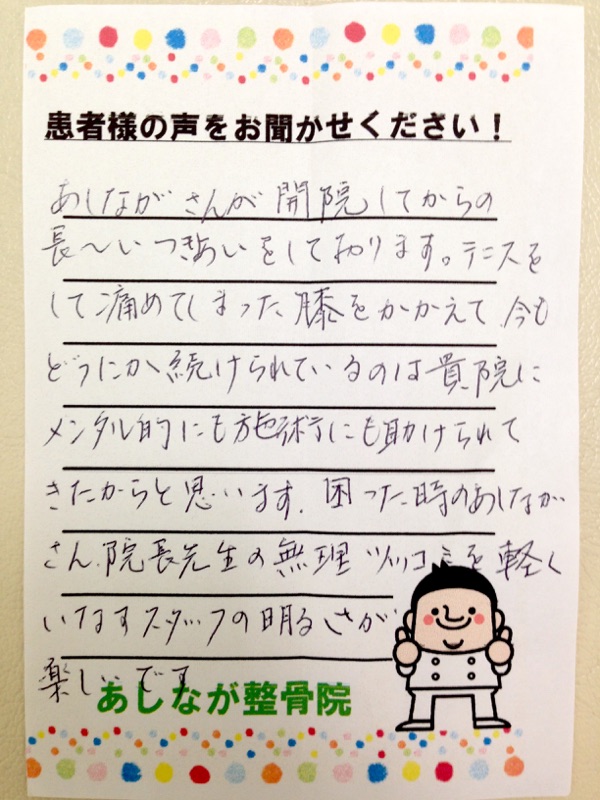 患者様の声をお聞かせください！
あしながさんが開院してからの
長〜いつきあいをして初ります。テニスを
して痛めてしまった膝をかかえて、今も
どうにか続けられているのは貴院に
メンタル的にも施術にも助けられて
きたからと思います。困った時のあしなが
さん、院長先生の無理ツッコミを軽く
いなすスタッフの明るさが
楽しいです
あしなが整骨院